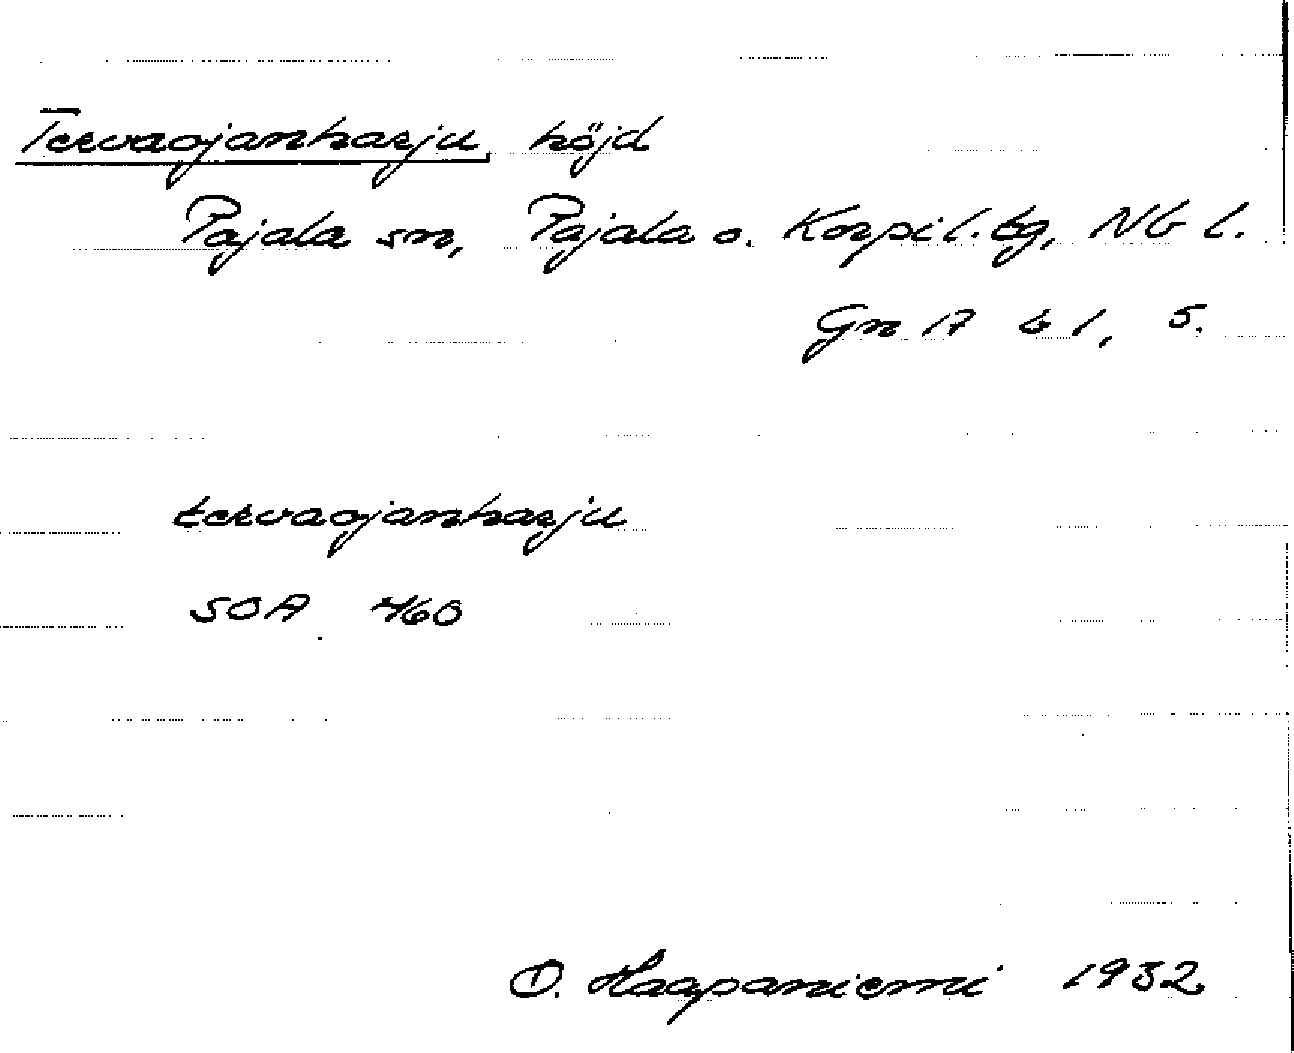 Tervaojanharju, höjd
Pajala sn, Pajala o. Korpil. tg, Nb l.
Gn 17 b 1, 5.
tervaojanharju
SOA 460
O. Haapaniemi 1932